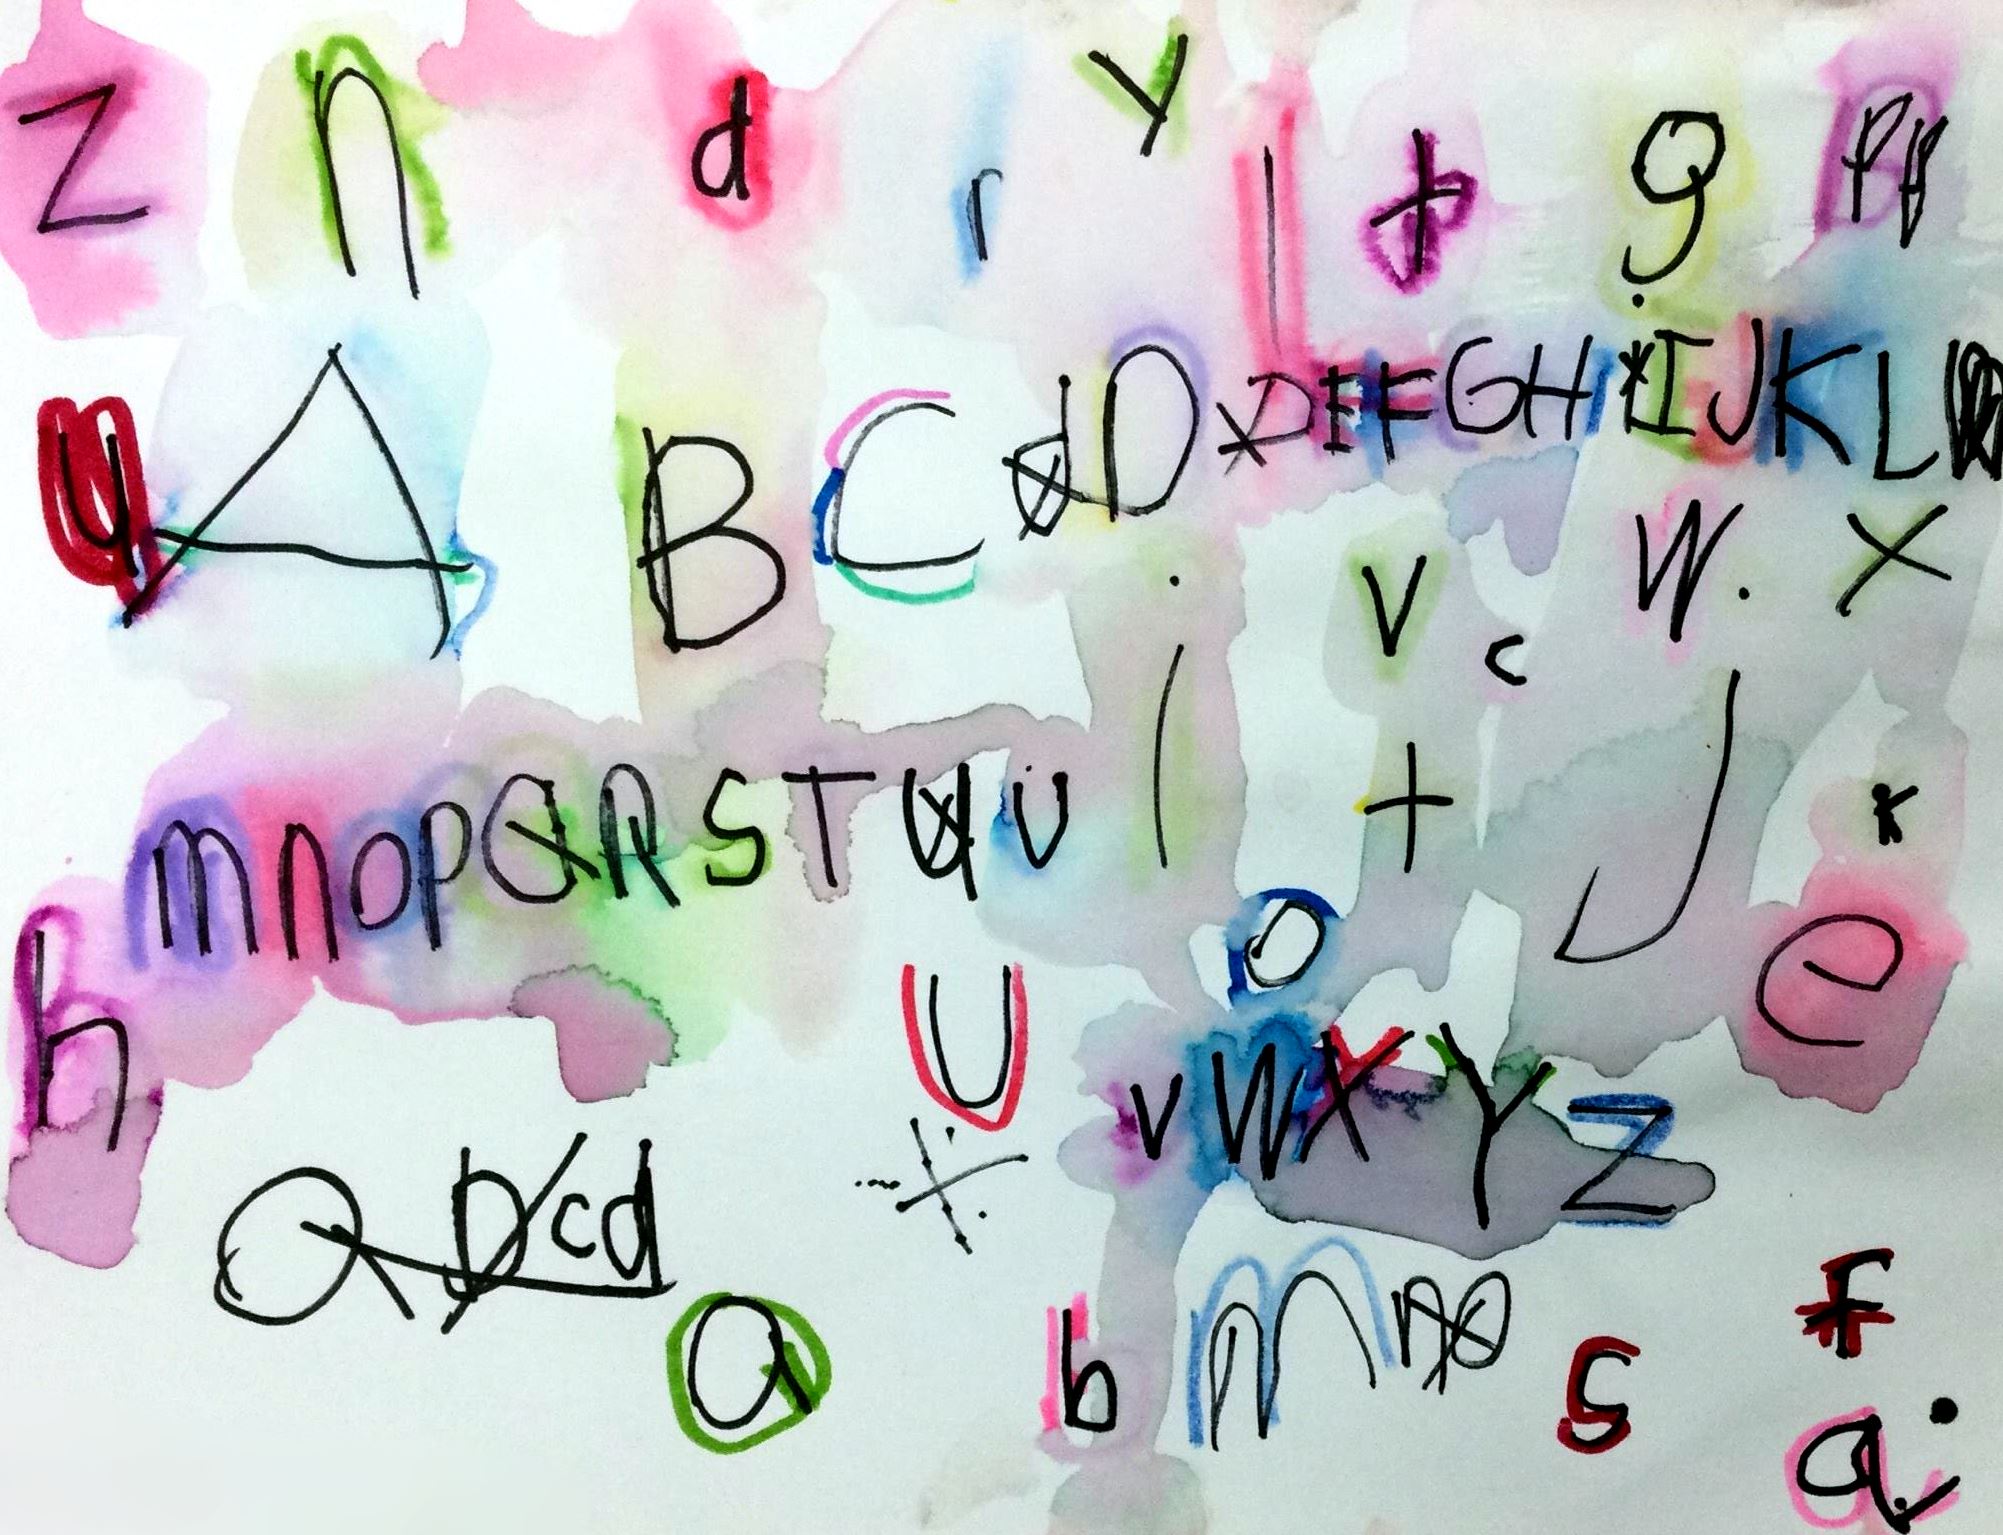 z n d r y l t g p
u A B C D E F G H I J K L
i v c w x
m n o p Q R S T U
t j k
h o e
U v W X Y Z
Q cd
a b m n s f
q